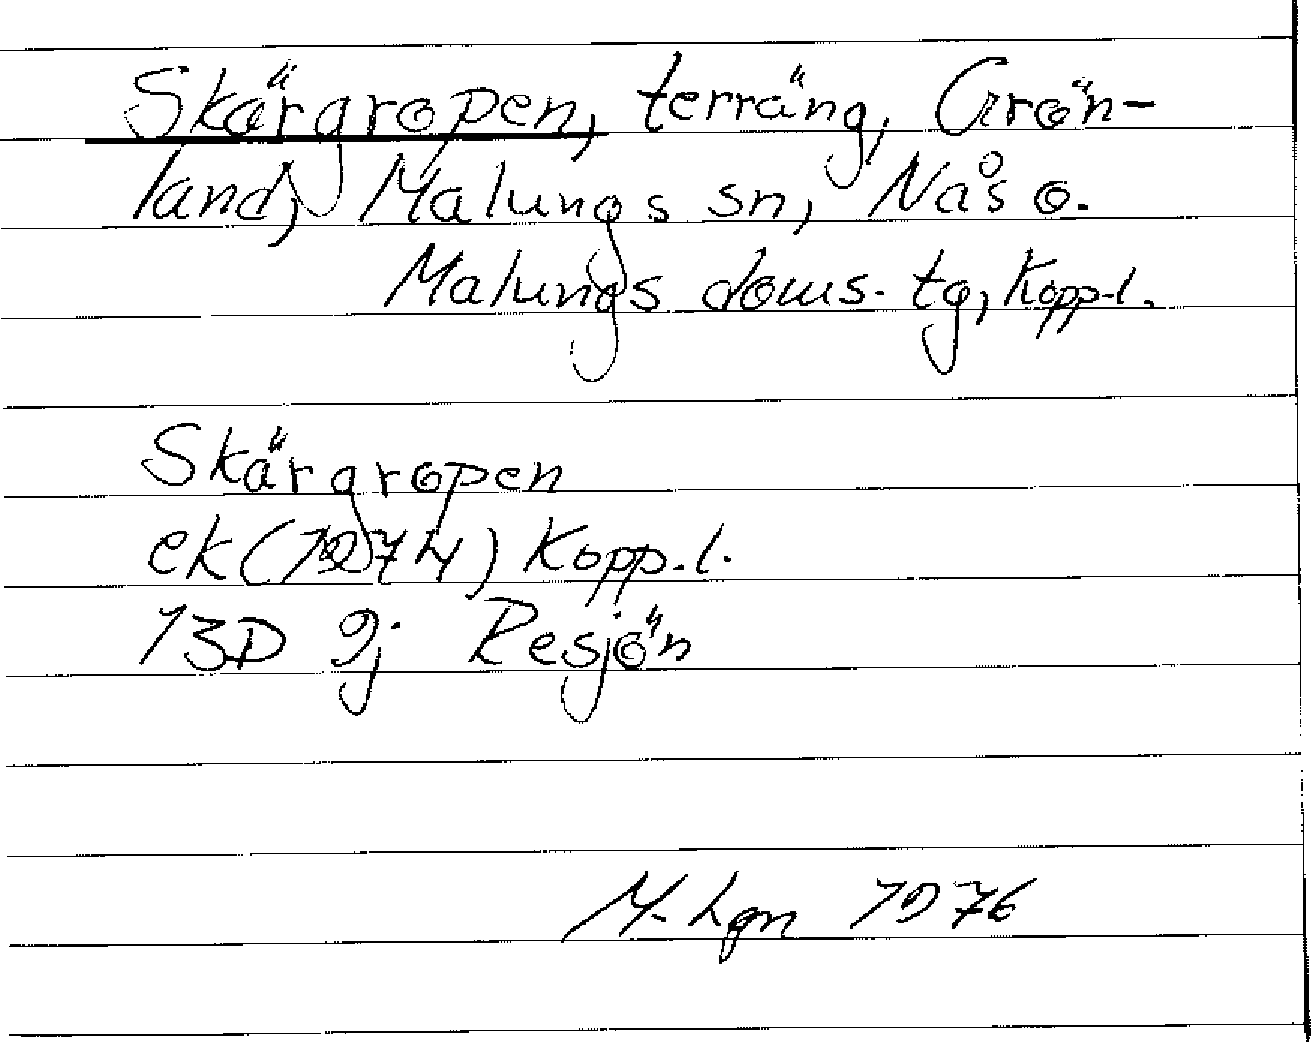 Skärgropen, terräng, Grön-
land, Malungs sn, Nås o.
Malungs doms. tg, Kopp.l.
Skärgropen
ek (1974) Kopp.l.
13D 9j Resjön
M-Lgn 1976